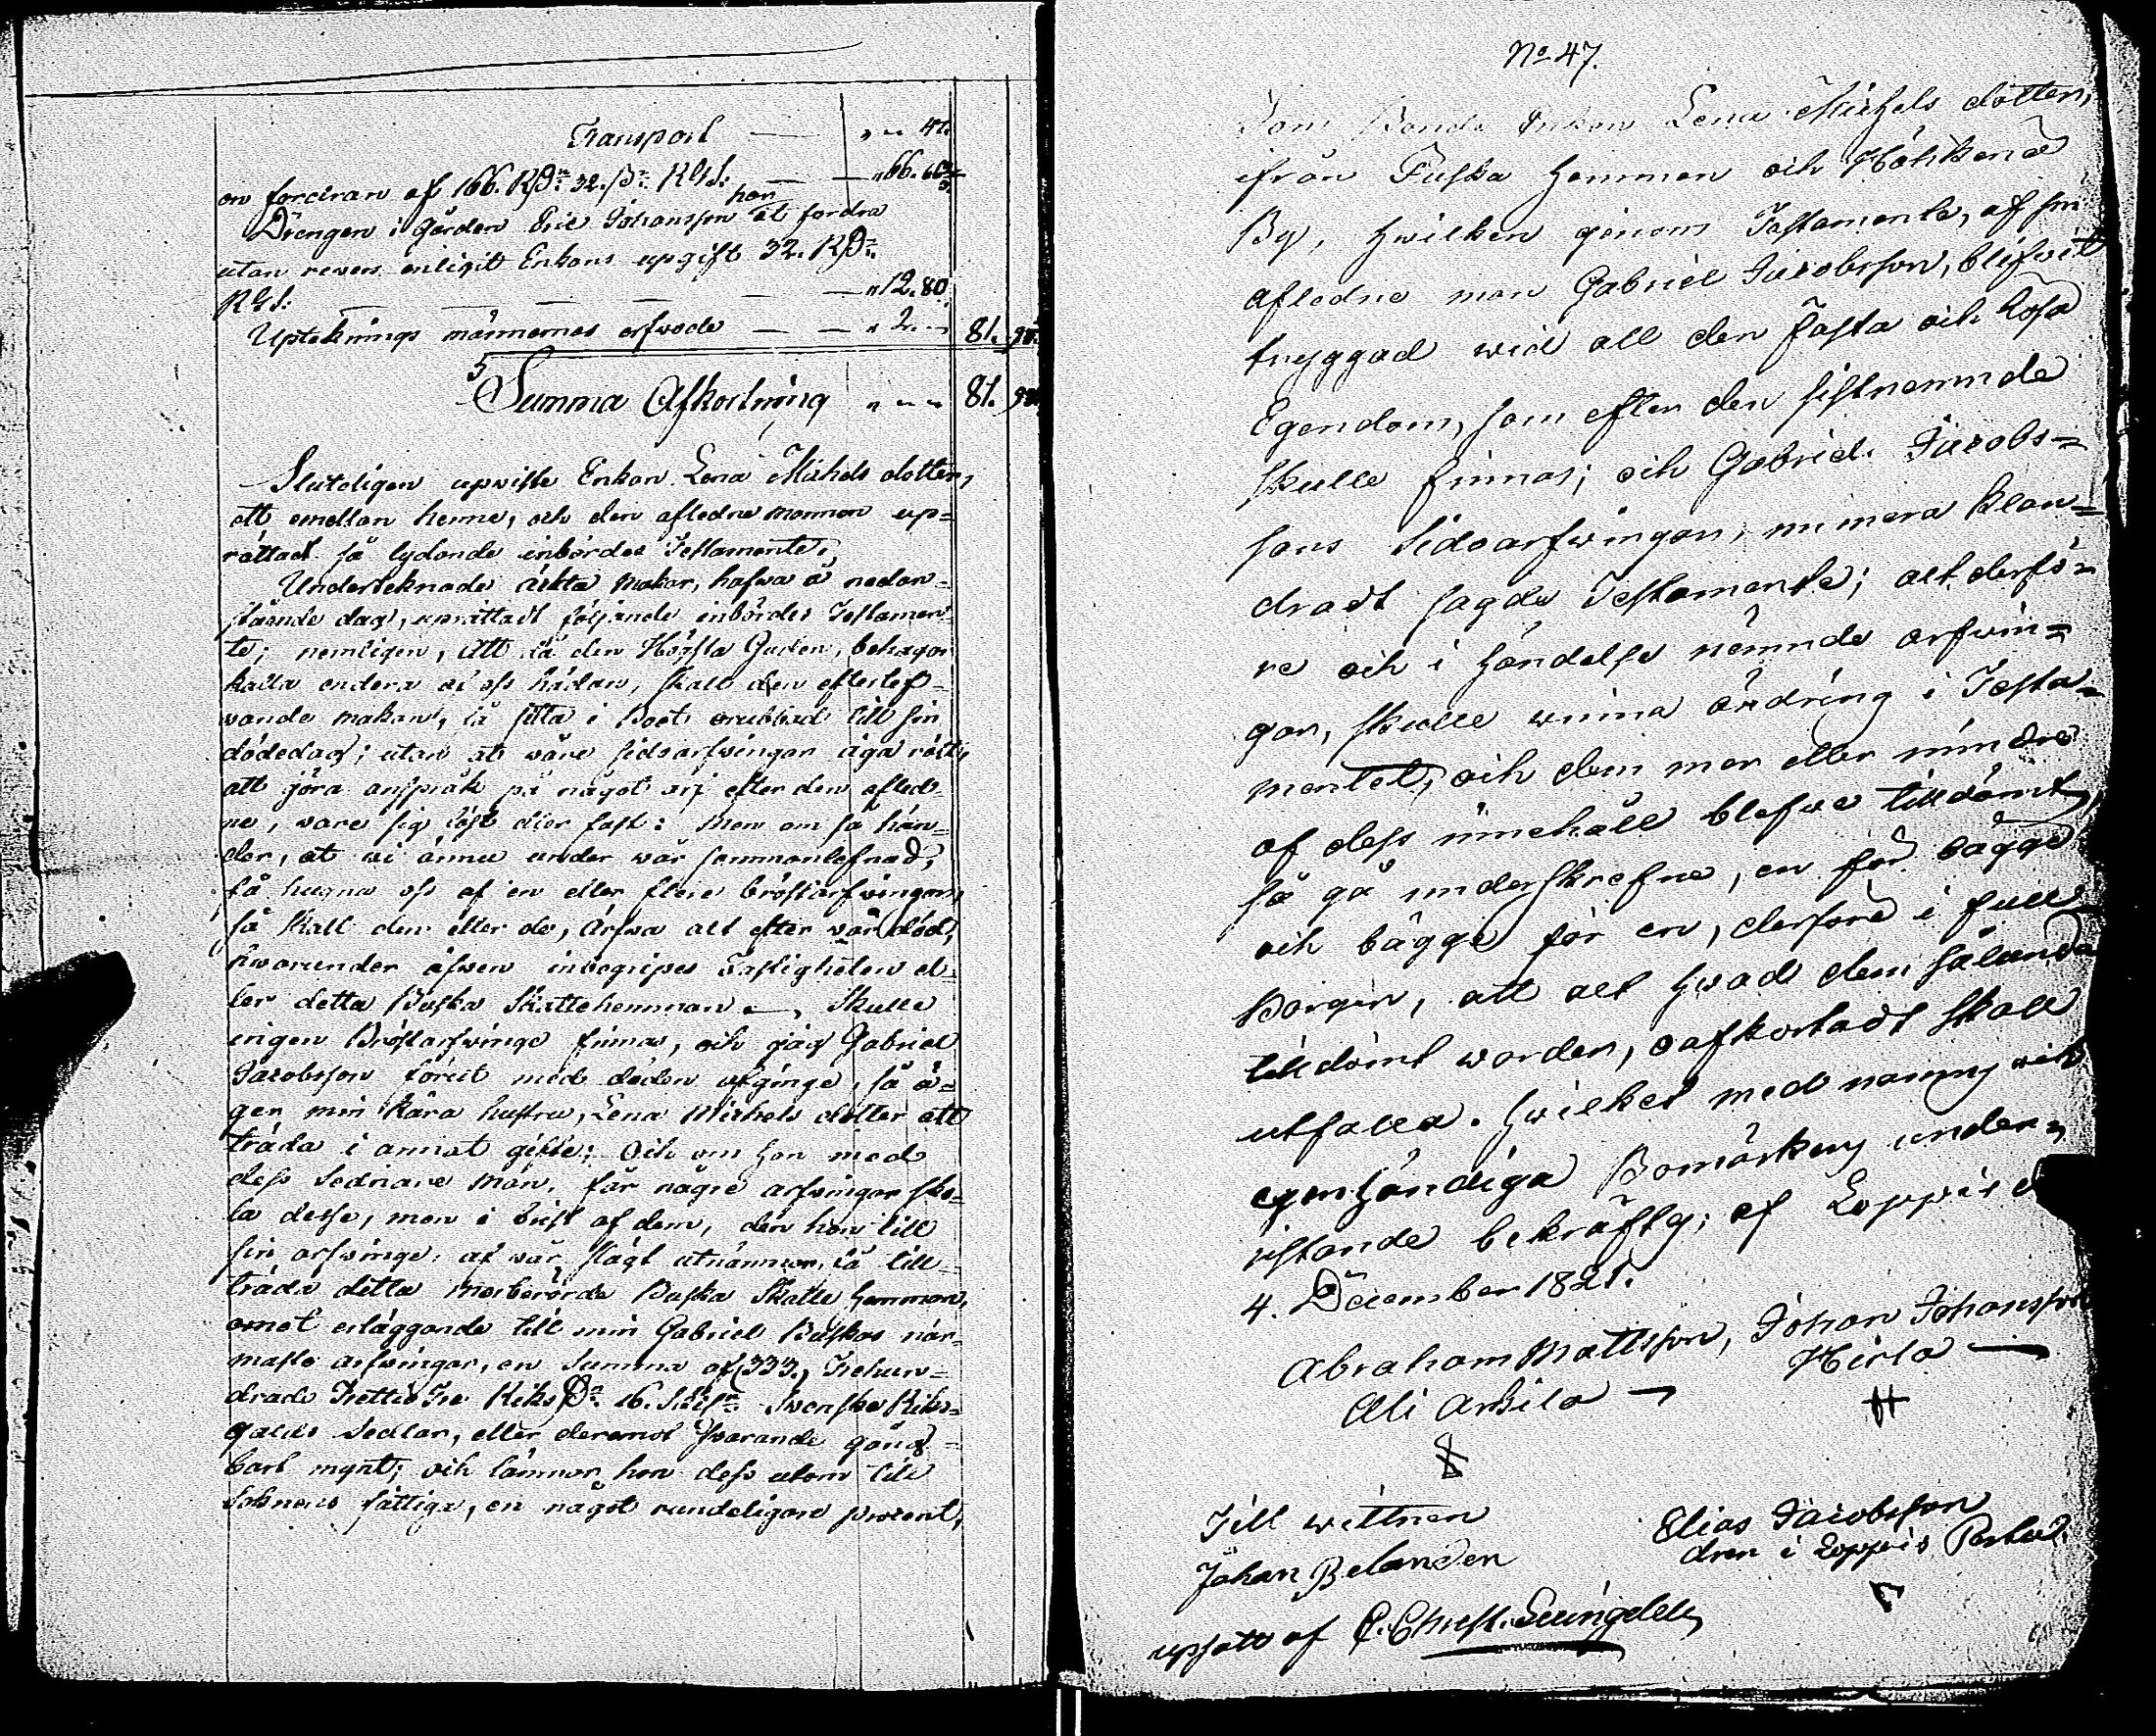 Transport — " " 41.
en fordran af 166. RD:r 32. s:r RGS: — — " 66. 66 2/3
Drengen i gården Eric Johansson har at fordra
utan revers enligit Enkans upgift 32. RD:r
RGS: — — — — — — " 12. 80
Upteknings männernas arfwode — — " 2. — 81.
Summa Afkortning " " " 81.
Sluteligen upwiste Enkan Lena Michels dotter,
ett emellan henne, och den aflednе mannen up=
rättadt så lydande inbördes Testamente;
Underteknade äckta Makar, hafwa å nedan=
stående dag, uprättadt följande inbördes Testamen=
te; nemligen, Att då den Högsta Guden, behagar
kalla endera af oss hädan, skall den efterlef=
wande makan, få sitta i Boet orubbad till sin
dödedag; utan at wåre sidoarfwingar äga rätt,
att göra anspråk på något arf efter den afled=
ne, ware sig löst eller fast: Men om så hän=
der, at wi ännu under wår sammanlefnad,
få hugna oss af en eller flere bröstarfwingar,
så skall den eller de, Ärfwa alt efter wår död,
hwarunder äfwen inbegripes Fastigheten el=
ler detta Buska Skattehemman —, Skulle
ingen Bröstarfwinge finnas, och jag Gabriel
Jacobsson förut med döden afginge, så ä=
ger min kära hustru, Lena Michels dotter att
träda i annat gifte; Och om hon med
dess sednare Man, får några arfwingar sko=
la desse, men i brist af dem, den hon till
sin arfwinge af wår slägt utnämner, få till=
träda detta merberörde Buska Skatte hemman,
emot erläggande till min Gabriel Buskas när=
maste arfwingar, en Summa af 333, Trehun=
drade Trettio Tre Riks D:r 16. Skil:r Swenska Riks=
gälds Sedlar, eller deremot swarande gång=
bart mynt; och lämnar hon dess utom till
Soknens fattiga, en något rundeligare procent,
No 47.
Som Bonde Enkan Lena Michels dotter,
ifrån Buska hemman och
By, hwilken genom Testamente, af sin
aflednе man Gabriel Jacobsson, blifwit
tryggad wid all den fasta och lösa
Egendom, som efter den sistnemnde
skulle finnas; och Gabriel Jacobs=
sons Sidoarfwingar, numera klan=
dradt sagde Testamente; alt derfö=
re och i händelse nämnde arfwin=
gar, skulle winna ändring i Testa=
mentet, och dem mer eller mindre
af dess innehåll blefwe tilldömt,
så gå underskrefne, en för bägge
och bägge för en, derföre i full
Borgen, att alt hwad dem sålunda
tilldömt warder, oafkortadt skall
utfalla. Hwilket med namn och
egenhändiga Bomärken under=
istände bekräfta; af Loppis d
4. December 1821.
Abraham Mattsson, Johan Johansson
Ali Arkila — Hirla —
Till wittnen
Johan Belander
Elias Jacobsson
dren i Loppis
upsatt af C. Christ. Ljungdell